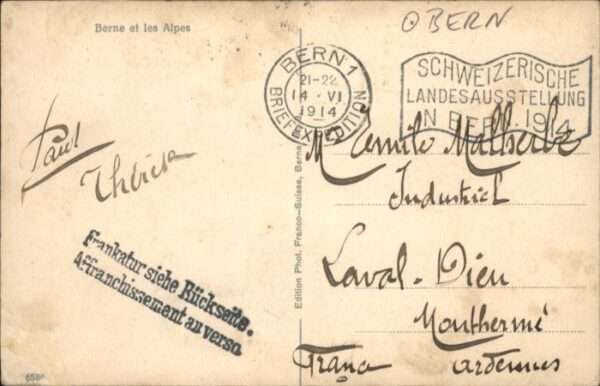 Berne et les Alpes
OBERN
BERN 1
21-22
14 · VI
1914
BRIEFEXPEDITION
SCHWEIZERISCHE
LANDESAUSSTELLUNG
IN BERN 1914
Paul
M Camille Malherbe
Industriel
Laval-Dieu
Monthermé
France Ardennes
Frankatur siehe Rückseite.
Affranchissement au verso
Edition Phot. Franco-Suisse, Berne